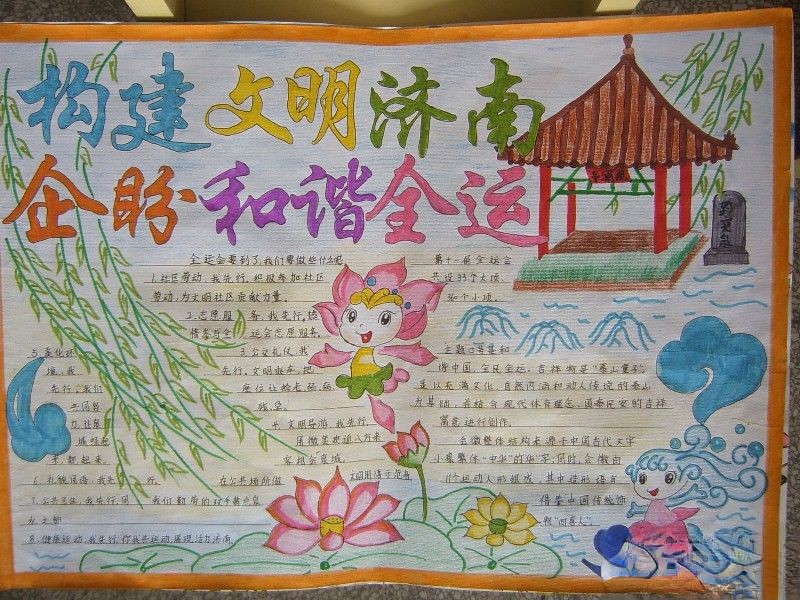 构建文明济南
企盼和谐全运
全运会要到了,我们要做些什么呢
1.社区劳动,我先行.积极参加社区
劳动,为文明社区贡献力量。
2.志愿服务,我先行.热
情参与全运会志愿服务。
3.公交礼仪,我
先行.文明乘车,把
座位让给老弱病
残孕。
4.文明导游,我先行.
用微笑欢迎八方来
客相会泉城。
5.美化环
境,我
先行.我们
共同努
力,让泉
城
来.靓起来。
6.礼貌用语,我先行.在公共场所做文明用语示范者
7.公共卫生,我先行.用我们勤劳的双手共点泉
8.健康运动,我先行.你我共运动,展现活力济南
第十一届全运会
共设33个大项.
360个小项。
主题口号是和
谐中国,全民全运.吉祥物是“泰山童子”.
是以充满文化、自然内涵和动人传说的泰山
为基础,并结合现代体育理念、国泰民安的吉祥
寓意进行创作。
会徽整体结构来源于中国古代文字
小篆繁体“中华”的“华”字,同时,会徽由
11个运动人形组成,其中造形语言
借鉴中国传统饰
物“四喜人”。
趵突泉